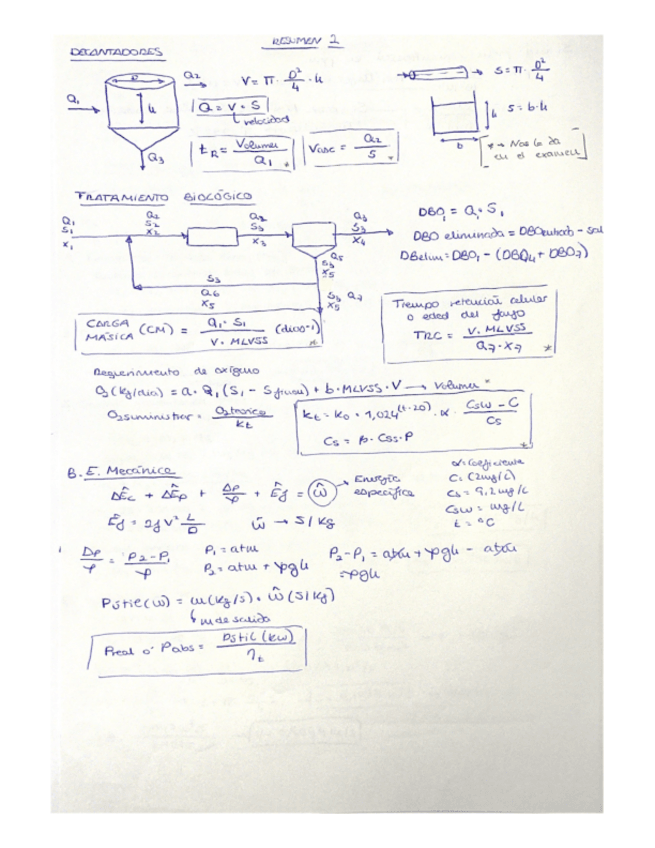 RESUMEN 2
DECANTADORES
D
h
Q1
Q2
Q3
V = π · D²/4 · h
Q = V · S
velocidad
tR = Volumen/Q1 *
Vasc = Q2/S *
S = π · D²/4
h
b
S = b·h
* → Nos la da
en el examen
TRATAMIENTO BIOLÓGICO
Q1 S1 X1
Q2 S2 X2
Q2 S3 X3
Q5 S3 X5
S3 Q6 X5
S3 Q7 X5
DBO1 = Q1·S1
DBOelim = DBO1 - (DBO4 + DBO7)
CARGA MÁSICA (CM) = Q1·S1/V·MLVSS (días-1) *
Tiempo retención celular
o edad del fango
TRC = V·MLVSS/Q7·X7 *
Requerimiento de oxígeno
O2(kg/día) = a·Q1(S1 - Sfinal) + b·MLVSS·V → Volumen
O2suministrar = O2teórico/kt
kt = k0 · 1,024^(t-20) · α · CSW - C/CS
CS = β·CSS·P *
B.E. Mecánica
ΔÊc + ΔÊp + Δp/φ + Êf = ŵ → Energía específica
Êf = 2fV² L/D
ŵ → J/kg
α = coeficiente
C = (2mg/L)
CS = 9,2 mg/L
CSW = mg/L
t = °C
Δp/φ = P2-P1/φ
P1 = atm
P2 = atm + φgh
P2-P1 = atm + φgh - atm
= φgh
Pútil(w) = m(kg/s) · ŵ(J/kg)
m de salida
Preal ó Pabs = Pútil(kw)/ηt